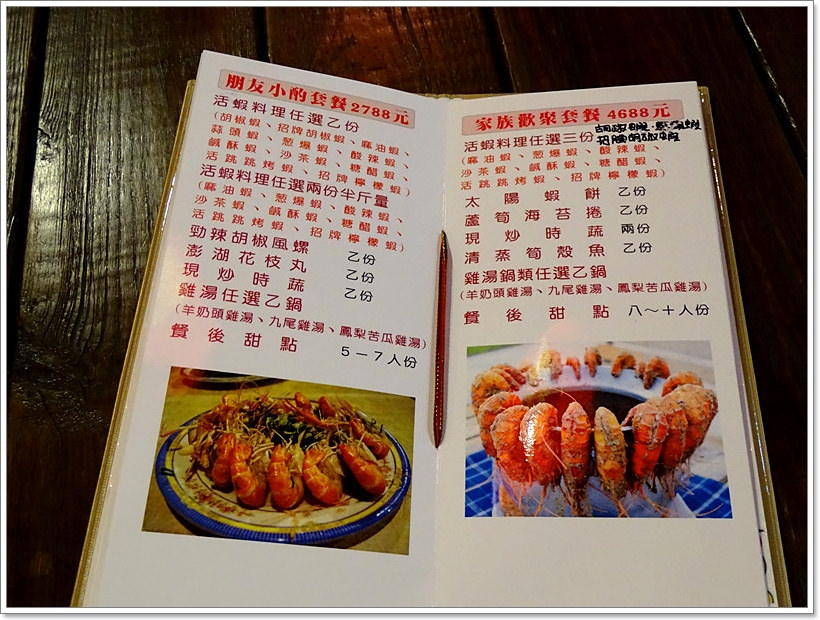 朋友小酌套餐2788元
活蝦料理任選乙份
(胡椒蝦、招牌胡椒蝦、麻油蝦、
蒜頭蝦、蔥爆蝦、酸辣蝦、
鹹酥蝦、沙茶蝦、糖醋蝦、
活跳跳烤蝦、招牌檸檬蝦)
活蝦料理任選兩份半斤量
(麻油蝦、蔥爆蝦、酸辣蝦、
沙茶蝦、鹹酥蝦、糖醋蝦、
活跳跳烤蝦、招牌檸檬蝦)
勁辣胡椒風螺 乙份
澎湖花枝丸 乙份
現炒時蔬 乙份
雞湯任選乙鍋
(羊奶頭雞湯、九尾雞湯、鳳梨苦瓜雞湯)
餐後甜點 5－7人份
家族歡聚套餐 4688元
活蝦料理任選三份
(麻油蝦、蔥爆蝦、酸辣蝦、
沙茶蝦、鹹酥蝦、糖醋蝦、
活跳跳烤蝦、招牌檸檬蝦)
太陽蝦餅 乙份
蘆筍海苔捲 乙份
現炒時蔬 兩份
清蒸筍殼魚 乙份
雞湯鍋類任選乙鍋
(羊奶頭雞湯、九尾雞湯、鳳梨苦瓜雞湯)
餐後甜點 八～十人份